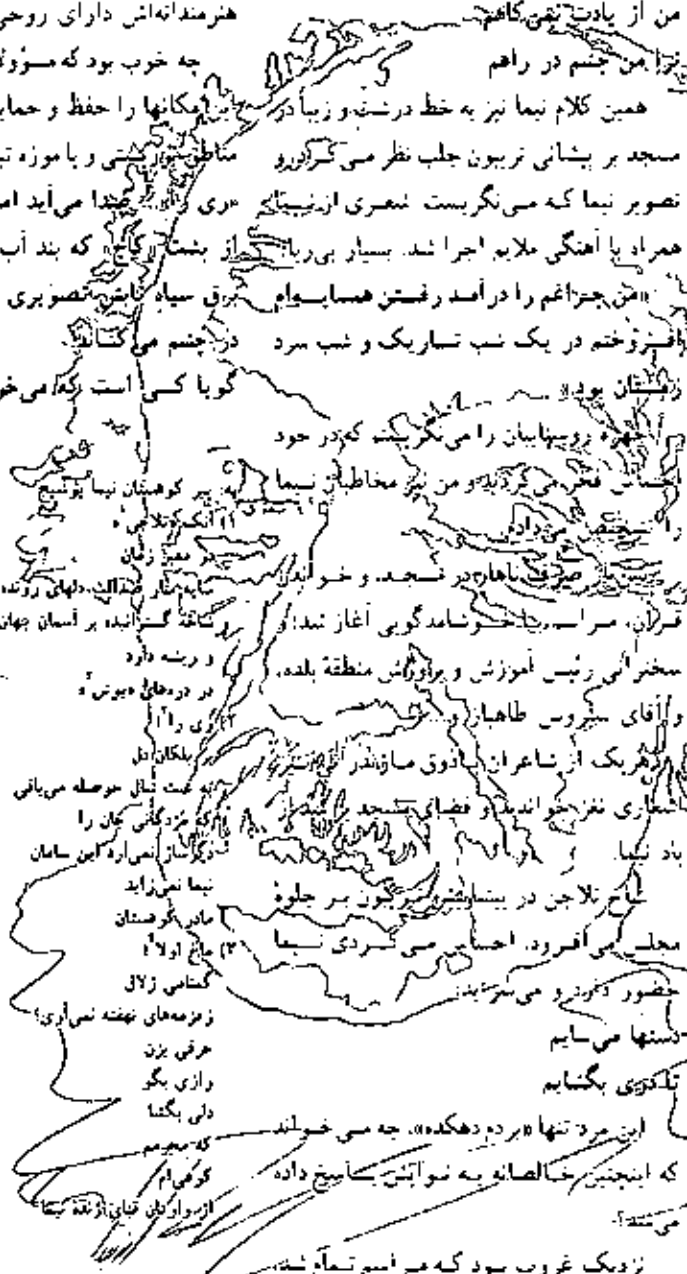 من از یادت نمی‌کاهم
ترا من چشم در راهم
همین کلام نیما نیز به خط درشت و زیبا در
مسجد بر پیشانی تریبون جلب نظر می‌کرد و
تصویر نیما که می‌نگریست شعری از نیما
همراه با آهنگی ملایم اجرا شد. بسیار بی‌ریا:
«من چراغم را در آمد رفتن همسایه‌ام
افروختم در یک شب تاریک و شب سرد
زمستان بود»
چهره روستاییان را می‌نگریستم که در خود
احساس فخر می‌کردند و من نیز مخاطبان نیما
را
صرف ناهار در مسجد، و خواندن
قرآن، مراسم با خوشامدگویی آغاز شد؛ و
سخنرانی رئیس آموزش و پرورش منطقهٔ بلده،
و آقای سیروس طاهباز و...
هریک از شاعران باذوق مازندرانی نیز
اشعاری نغز خواندند و فضای مسجد پر شد از
یاد نیما.
شاخ تلاجن در پیشانی تریبون بر جلوهٔ
مجلس می‌افزود. احساس می‌کردی نیما
حضور دارد و می‌سراید:
دستها می‌سایم
تا دری بگشایم
این مرد تنها «بر دم دهکده»، چه می‌خواند
که اینچنین خالصانه به نوایش پاسخ داده
می‌شد؟
نزدیک غروب بود که مراسم تمام شد
هنرمندانه‌اش دارای روحی
چه خوب بود که مسؤول
این مکانها را حفظ و حمای
مناطق توریستی و یا موزه تبد
«ری را»... صدا می‌آید ام
از پشت «کاچ» که بند آب
برق سیاه تابش تصویری
در چشم می‌کشاند.
گویا کسی است که می‌خو
به: پیر کوهستان نیما یوشیج
۱)
بر معبر زمان
سایه‌سار دلهای رونده
و شاخه گسترانیده بر آسمان جهان
و ریشه دارد
در دره‌های «یوش»
۲) ری را!
پلکان دل
به عبث شال حوصله می‌بافی
که مژدگانی جان را
دیگر ساز نمی‌آرد این سامان
نیما نمی‌زاید
مادر کوهستان
۳)
گمنامی زلال
زمزمه‌های نهفته نمی‌آری؟
حرفی بزن
رازی بگو
دلی بگشا
که محرمم
کوهی‌ام
از واردان قبای ژندهٔ نیما